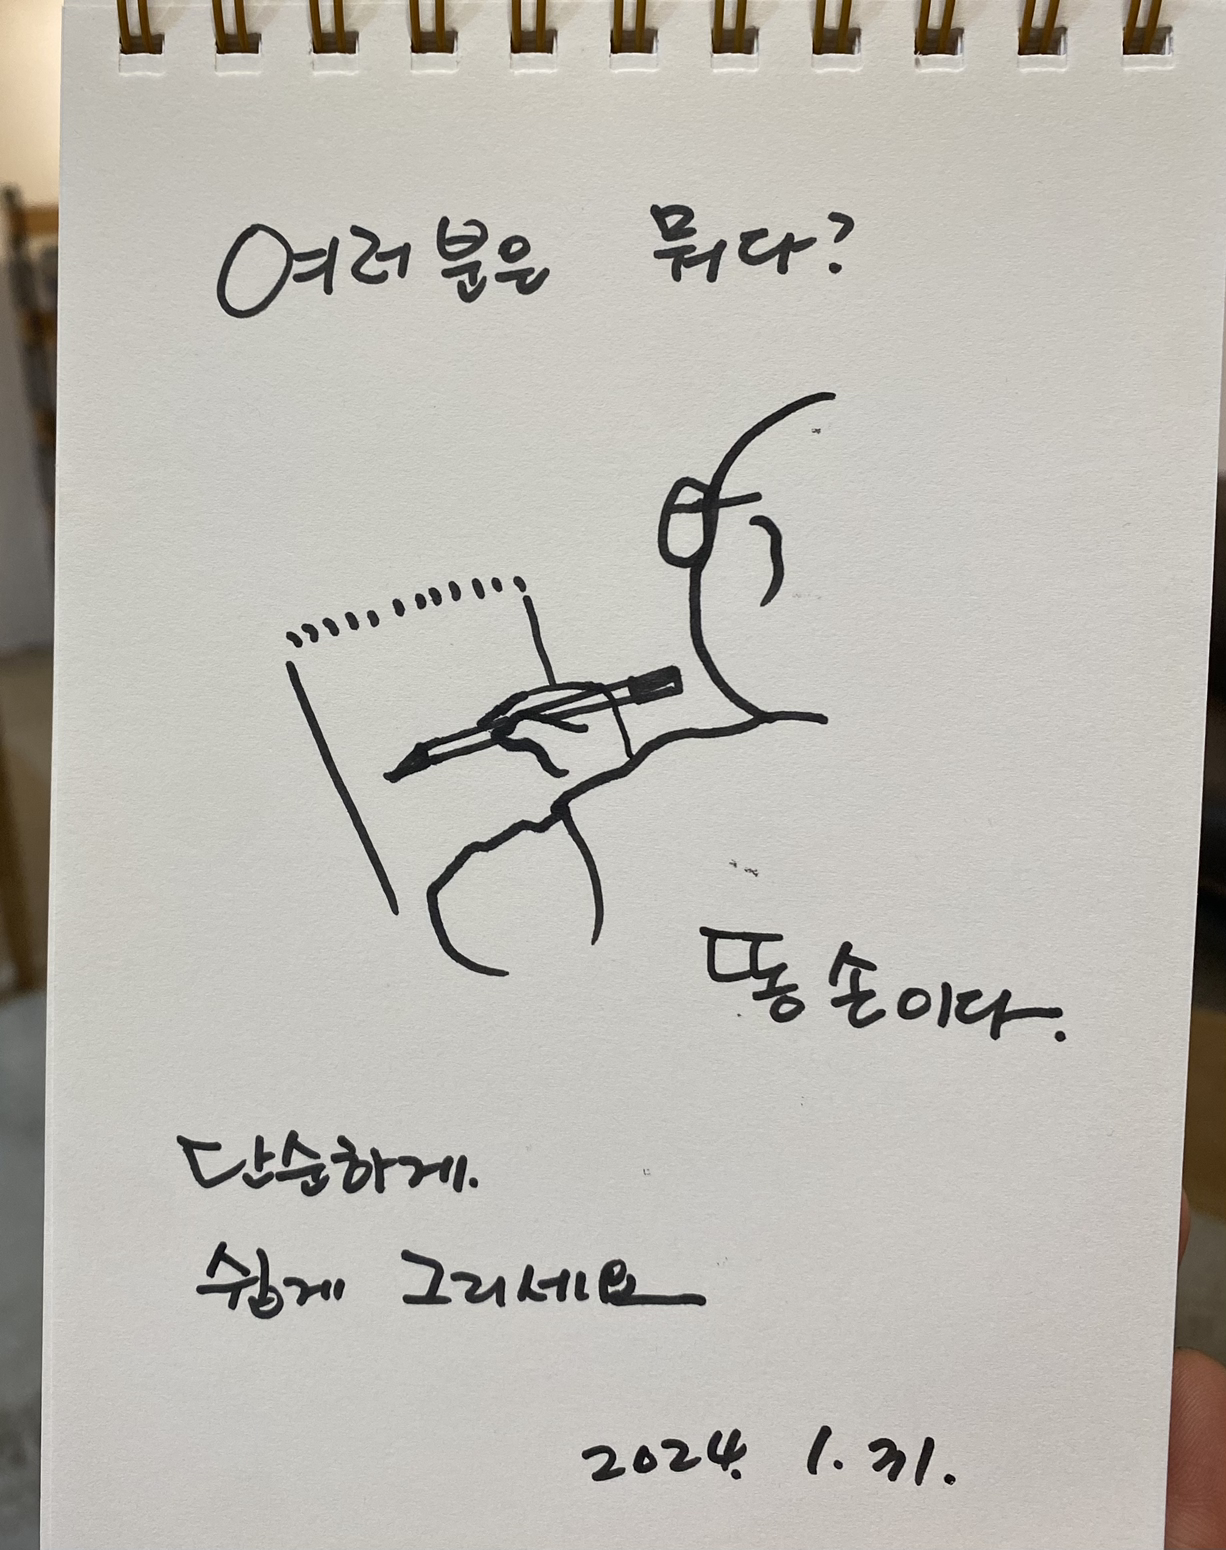 여러분은 뭐다?
똥손이다.
단순하게.
쉽게 그리세요
2024. 1. 31.